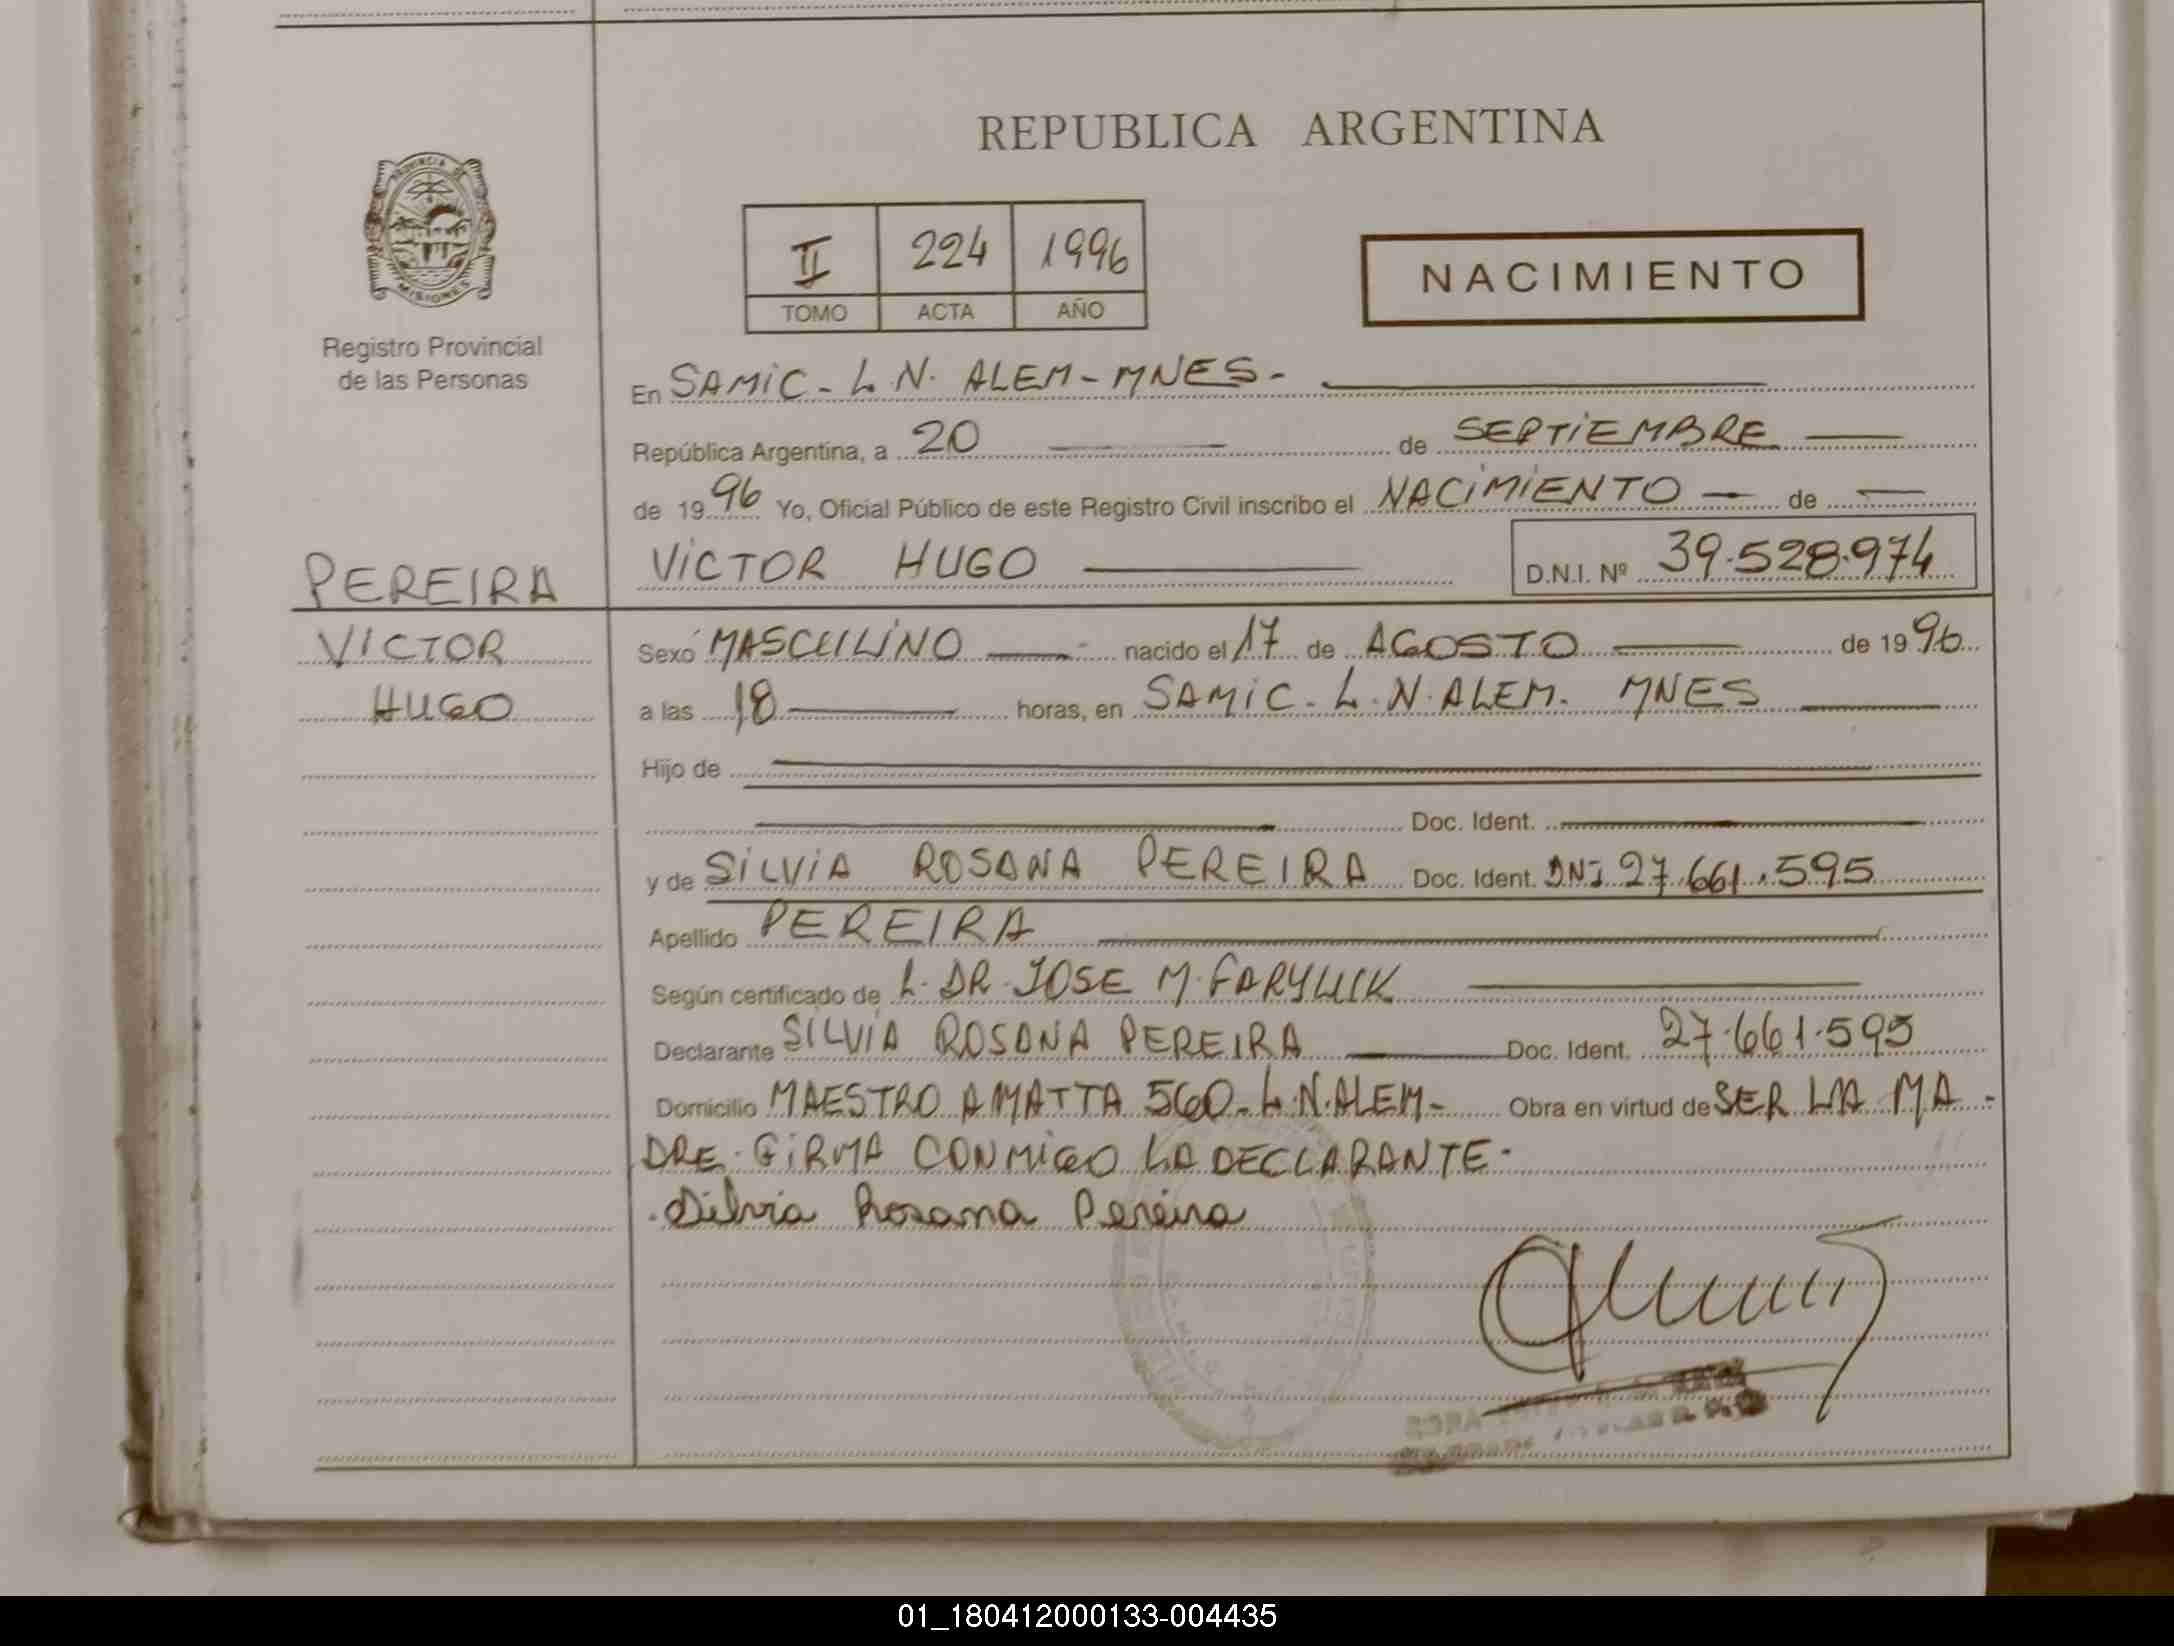 REPUBLICA ARGENTINA
PROVINCIA DE
MISIONES
Registro Provincial
de las Personas
II 224 1996
TOMO ACTA AÑO
NACIMIENTO
En SAMIC - L.N. ALEM - MNES -
República Argentina, a 20 de SEPTIEMBRE
de 1996 Yo, Oficial Público de este Registro Civil inscribo el NACIMIENTO de
VICTOR HUGO D.N.I. Nº 39.528.974
PEREIRA
VICTOR
HUGO
Sexo MASCULINO nacido el 17 de AGOSTO de 1996
a las 18 horas, en SAMIC - L.N. ALEM. MNES
Hijo de
Doc. Ident.
y de SILVIA ROSANA PEREIRA Doc. Ident. DNI 27.661.595
Apellido PEREIRA
Según certificado de L. DR. JOSE M.
Declarante SILVIA ROSANA PEREIRA Doc. Ident. 27.661.595
Domicilio MAESTRO AMATTA 560 - L.N. ALEM - Obra en virtud de SER LA MA-
DRE. FIRMA CONMIGO LA DECLARANTE -
Silvia Rosana Pereira
01_180412000133-004435